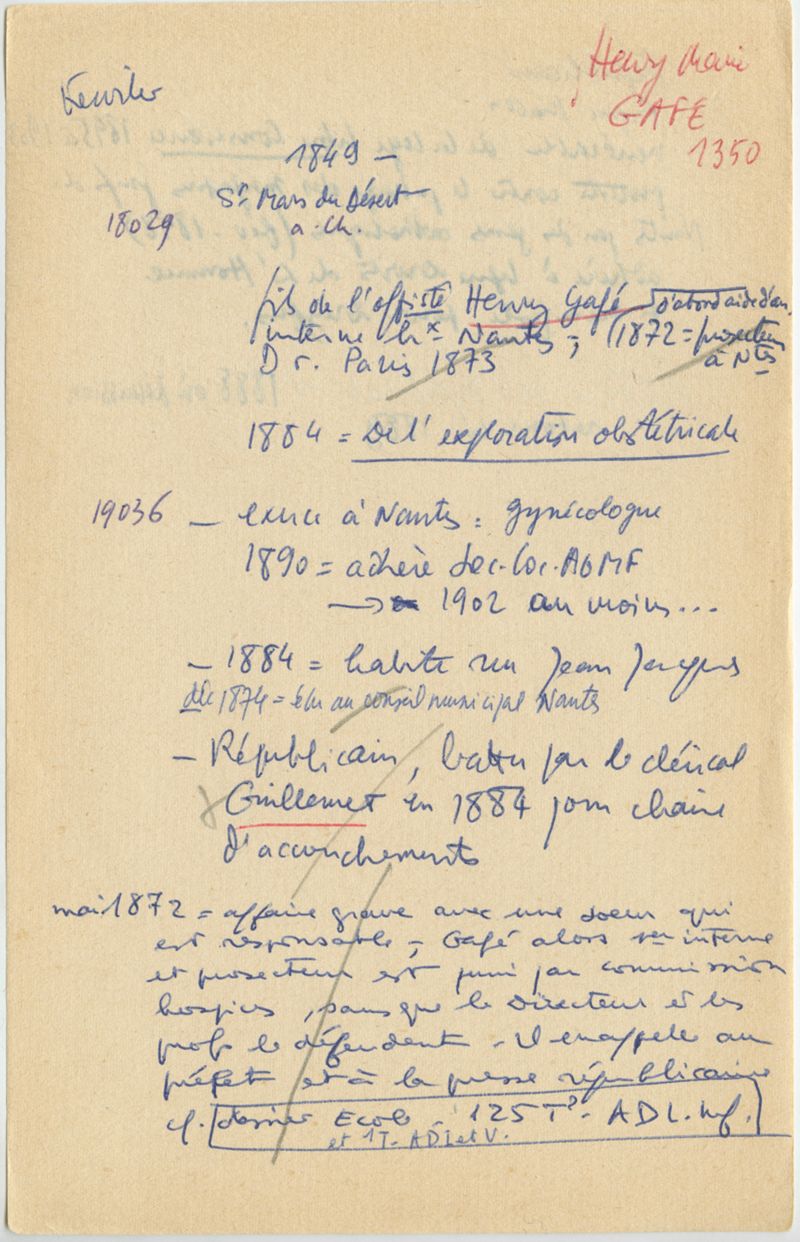 Henry Marie
GAFÉ
1350
1849 –
St Mars du Désert
18029 a. Ch.
fils de l'off. sté Henry Gafé d'abord aide d'an.
interne hx Nantes ; (1872 = prosecteur
Dr. Paris 1873 à Ntes
1884 = De l'exploration obstétricale
19036 – exerce à Nantes : gynécologue
1890 = adhère Soc. loc. AGMF
→ 1902 au moins...
– 1884 = habite rue Jean Jacques
dès 1874 = élu au conseil municipal Nantes
– Républicain, battu par le clérical
Guillemet en 1884 pour chaire
d'accouchements
mai 1872 = affaire grave avec une soeur qui
est responsable ; Gafé alors 1er interne
et prosecteur est puni par commission
hospices, sans que le Directeur et les
profs le défendent – Il en appelle au
préfet et à la presse républicaine
cf. dossier Ecole – 125 T – ADL. Inf.
et 1 T. ADL et V.